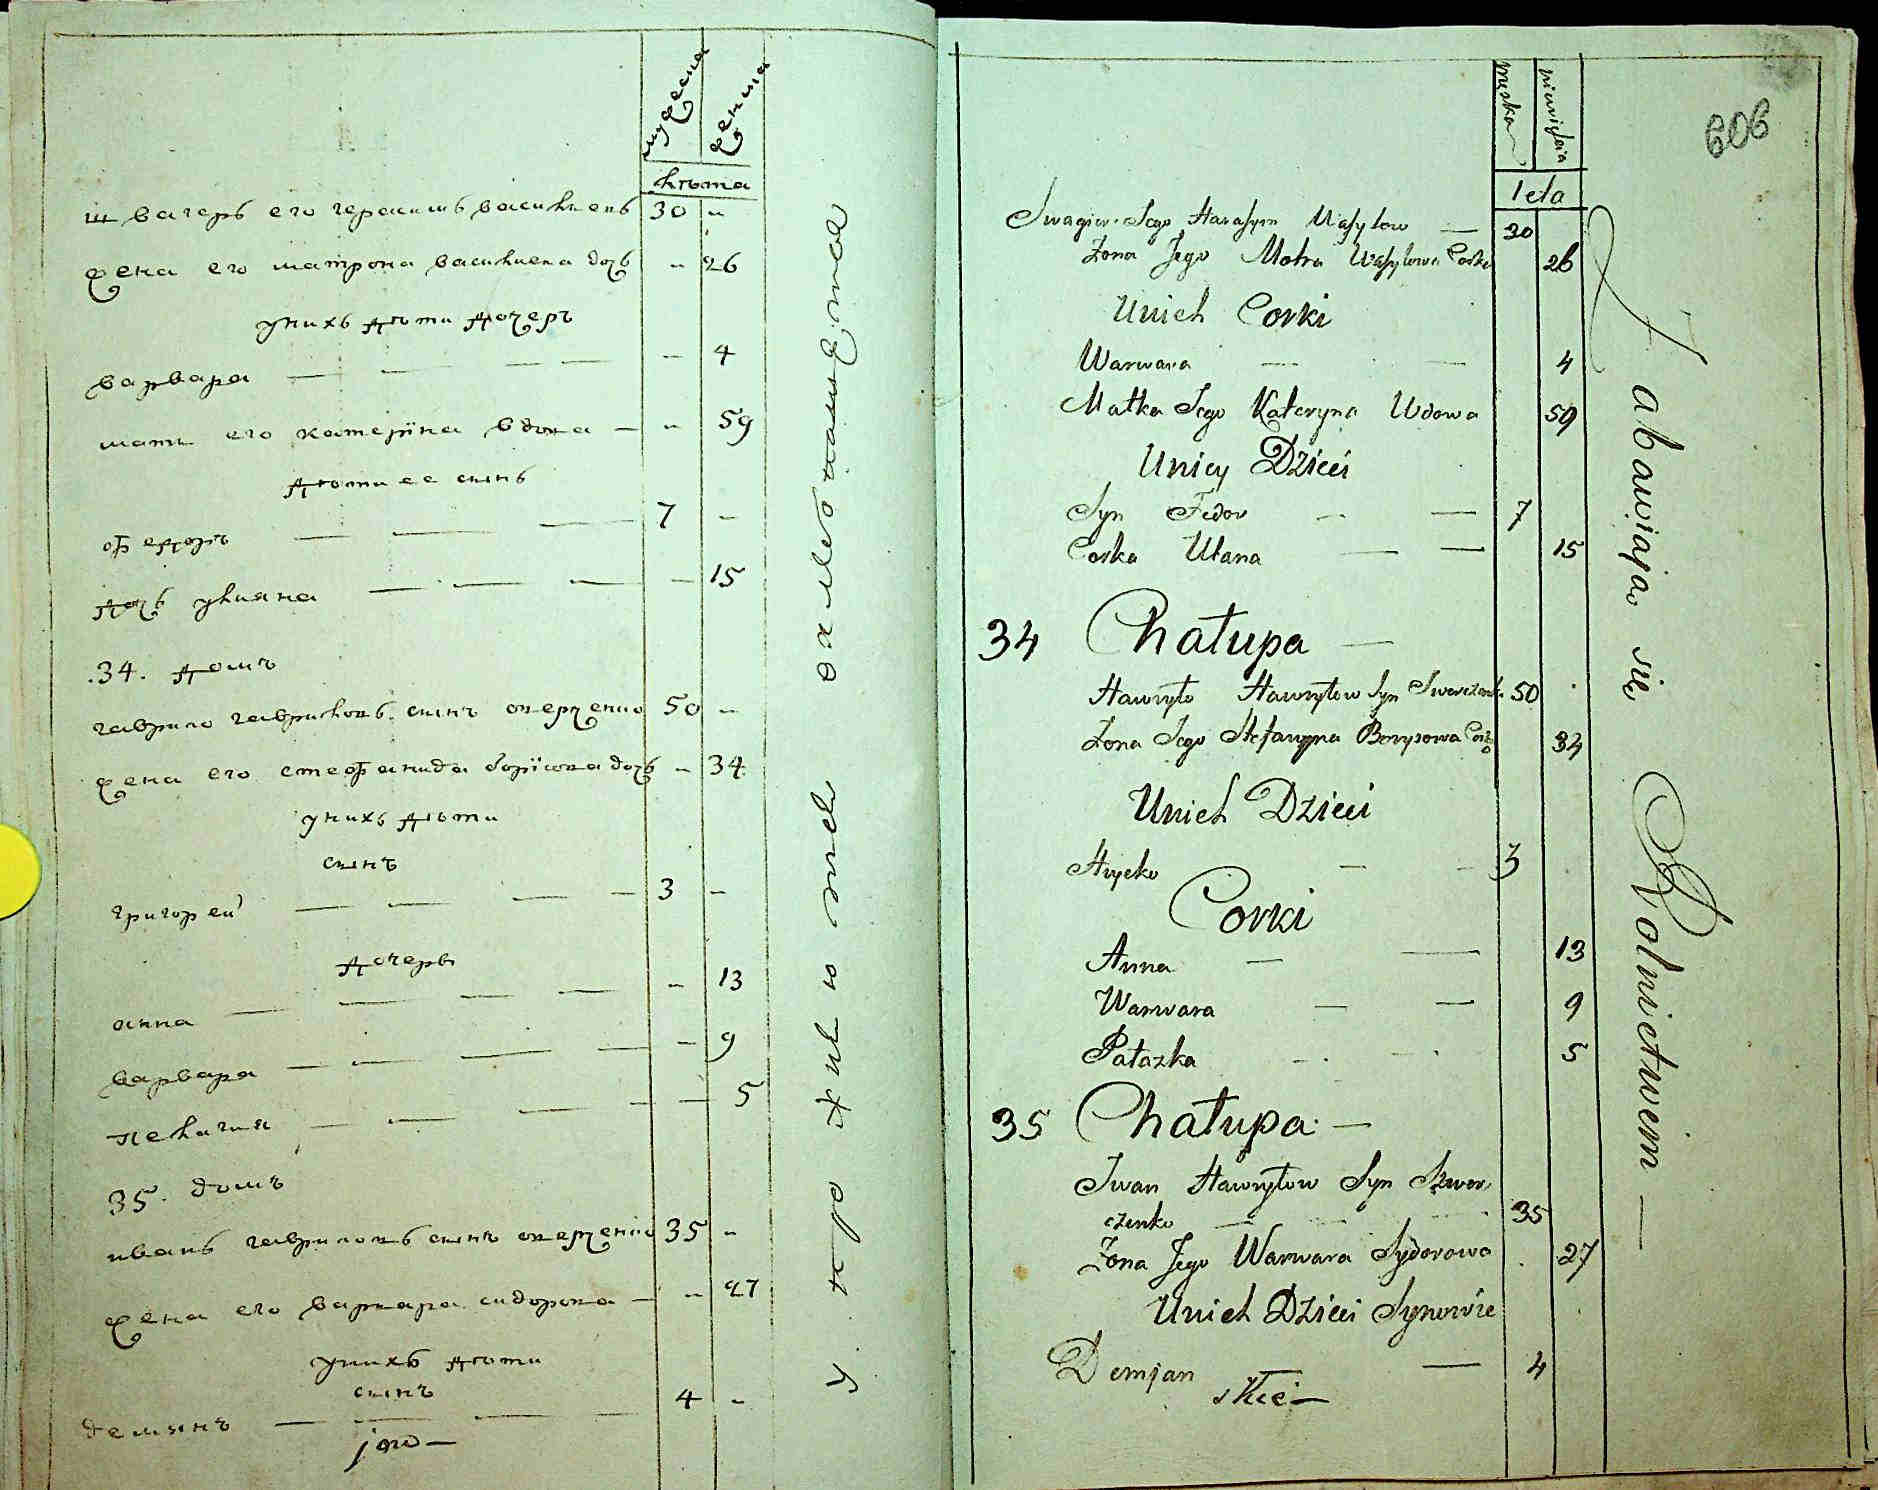 мужеска
женска
лѣта
швагеръ его герасимъ василиевъ 30 -
жена его матрона василиева дочь - 26
у нихъ дѣти дочеръ
варвара - 4
мать его катерїна вдова - - 59
дѣти ее сынъ
федоръ 7 -
дочь улияна - 15
34. домъ
гаврило гавриловъ сынъ 50 -
жена его стефанида борїсова дочь - 34
у нихъ дѣти
сынъ
григорей 3 -
дочеры
анна - 13
варвара - 9
пелагия - 5
35. домъ
иванъ гавриловъ сынъ 35 -
жена его варвара сидорова - 27
у нихъ дѣти
сынъ
демянъ 4 -
męska
leta
606
Swagier Jego Harasym Wasylow 30
Żona Jego Motra Wasylowa Corka 26
Unich Corki
Warwara 4
Matka Jego Kateryna Wdowa 59
Unicy Dzieci
Syn Fedor 7
Corka Ulana 15
34 Chałupa
Hawryło Hawryłow Syn 50
Żona Jego Stefanyna Borysowa 34
Unich Dzieci
Hryćko 3
Corki
Anna 13
Warwara 9
Pałazka 5
35 Chałupa
Iwan Hawryłow Syn Skwor
czenko 35
Żona Jego Warwara Sydorowa 27
Unich Dzieci Synowie
Demjan 4
Zabawiaja sie Rolnictwem